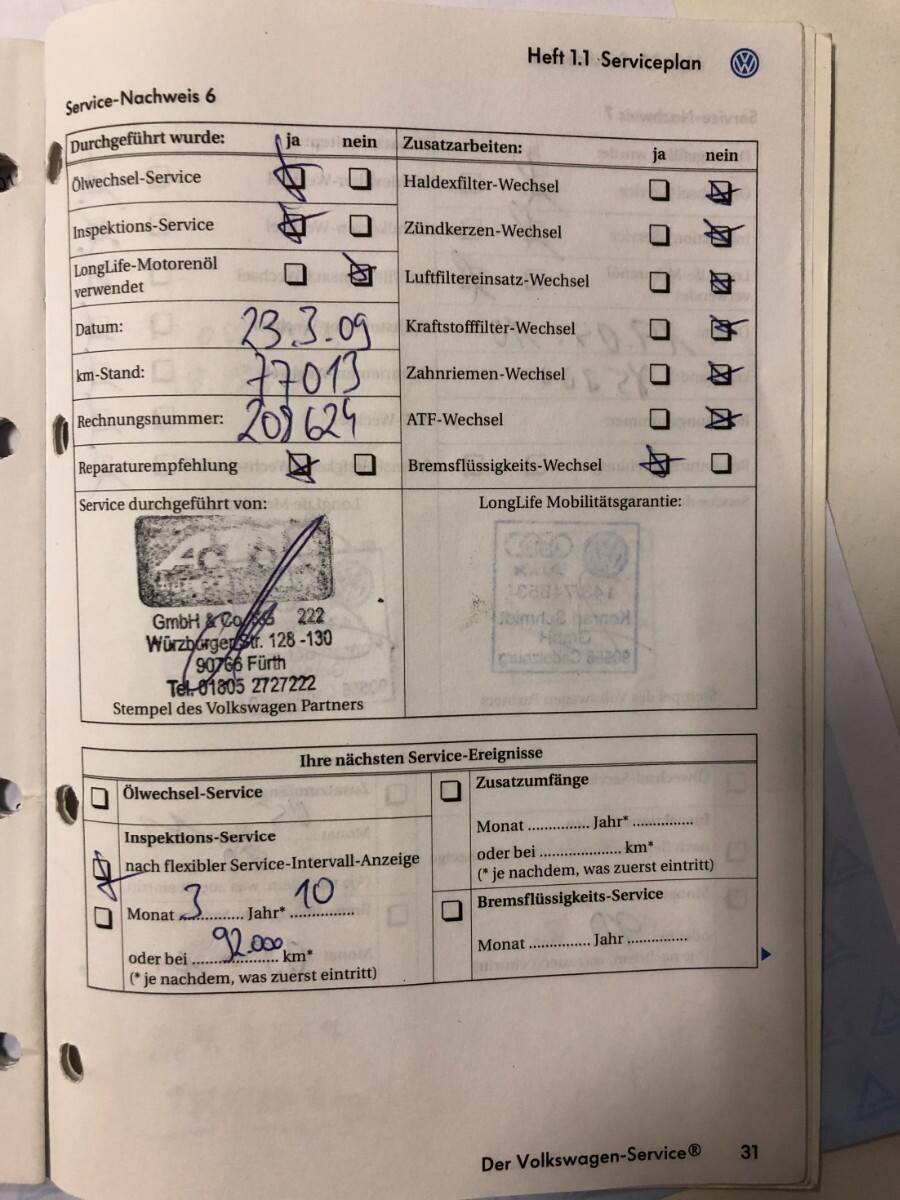 Heft 1.1 Serviceplan
Service-Nachweis 6
Durchgeführt wurde: ja nein
Ölwechsel-Service
Inspektions-Service
LongLife-Motorenöl
verwendet
Datum: 23.3.09
km-Stand: 77013
Rechnungsnummer: 208624
Reparaturempfehlung
Zusatzarbeiten: ja nein
Haldexfilter-Wechsel
Zündkerzen-Wechsel
Luftfiltereinsatz-Wechsel
Kraftstofffilter-Wechsel
Zahnriemen-Wechsel
ATF-Wechsel
Bremsflüssigkeits-Wechsel
Service durchgeführt von:
GmbH & Co. 222
Würzburger Str. 128-130
90766 Fürth
Tel. 01805 2727222
Stempel des Volkswagen Partners
LongLife Mobilitätsgarantie:
Ihre nächsten Service-Ereignisse
Ölwechsel-Service
Inspektions-Service
nach flexibler Service-Intervall-Anzeige
Monat 3 Jahr* 10
oder bei 92.000 km*
(* je nachdem, was zuerst eintritt)
Zusatzumfänge
Monat ............... Jahr* ...............
oder bei .................... km*
(* je nachdem, was zuerst eintritt)
Bremsflüssigkeits-Service
Monat ............... Jahr ...............
Der Volkswagen-Service® 31